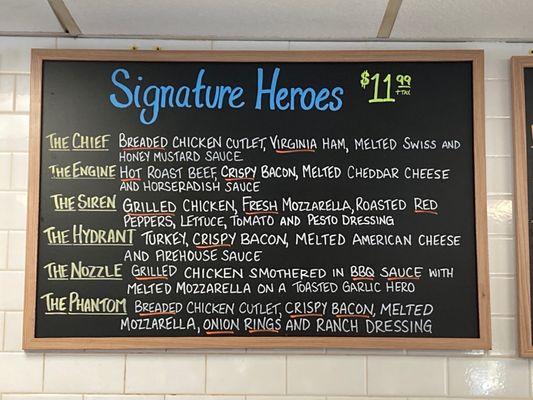 Signature Heroes $11 99 + TAX
THE CHIEF BREADED CHICKEN CUTLET, VIRGINIA HAM, MELTED SWISS AND
HONEY MUSTARD SAUCE
THE ENGINE HOT ROAST BEEF, CRISPY BACON, MELTED CHEDDAR CHEESE
AND HORSERADISH SAUCE
THE SIREN GRILLED CHICKEN, FRESH MOZZARELLA, ROASTED RED
PEPPERS, LETTUCE, TOMATO AND PESTO DRESSING
THE HYDRANT TURKEY, CRISPY BACON, MELTED AMERICAN CHEESE
AND FIREHOUSE SAUCE
THE NOZZLE GRILLED CHICKEN SMOTHERED IN BBQ SAUCE WITH
MELTED MOZZARELLA ON A TOASTED GARLIC HERO
THE PHANTOM BREADED CHICKEN CUTLET, CRISPY BACON, MELTED
MOZZARELLA, ONION RINGS AND RANCH DRESSING